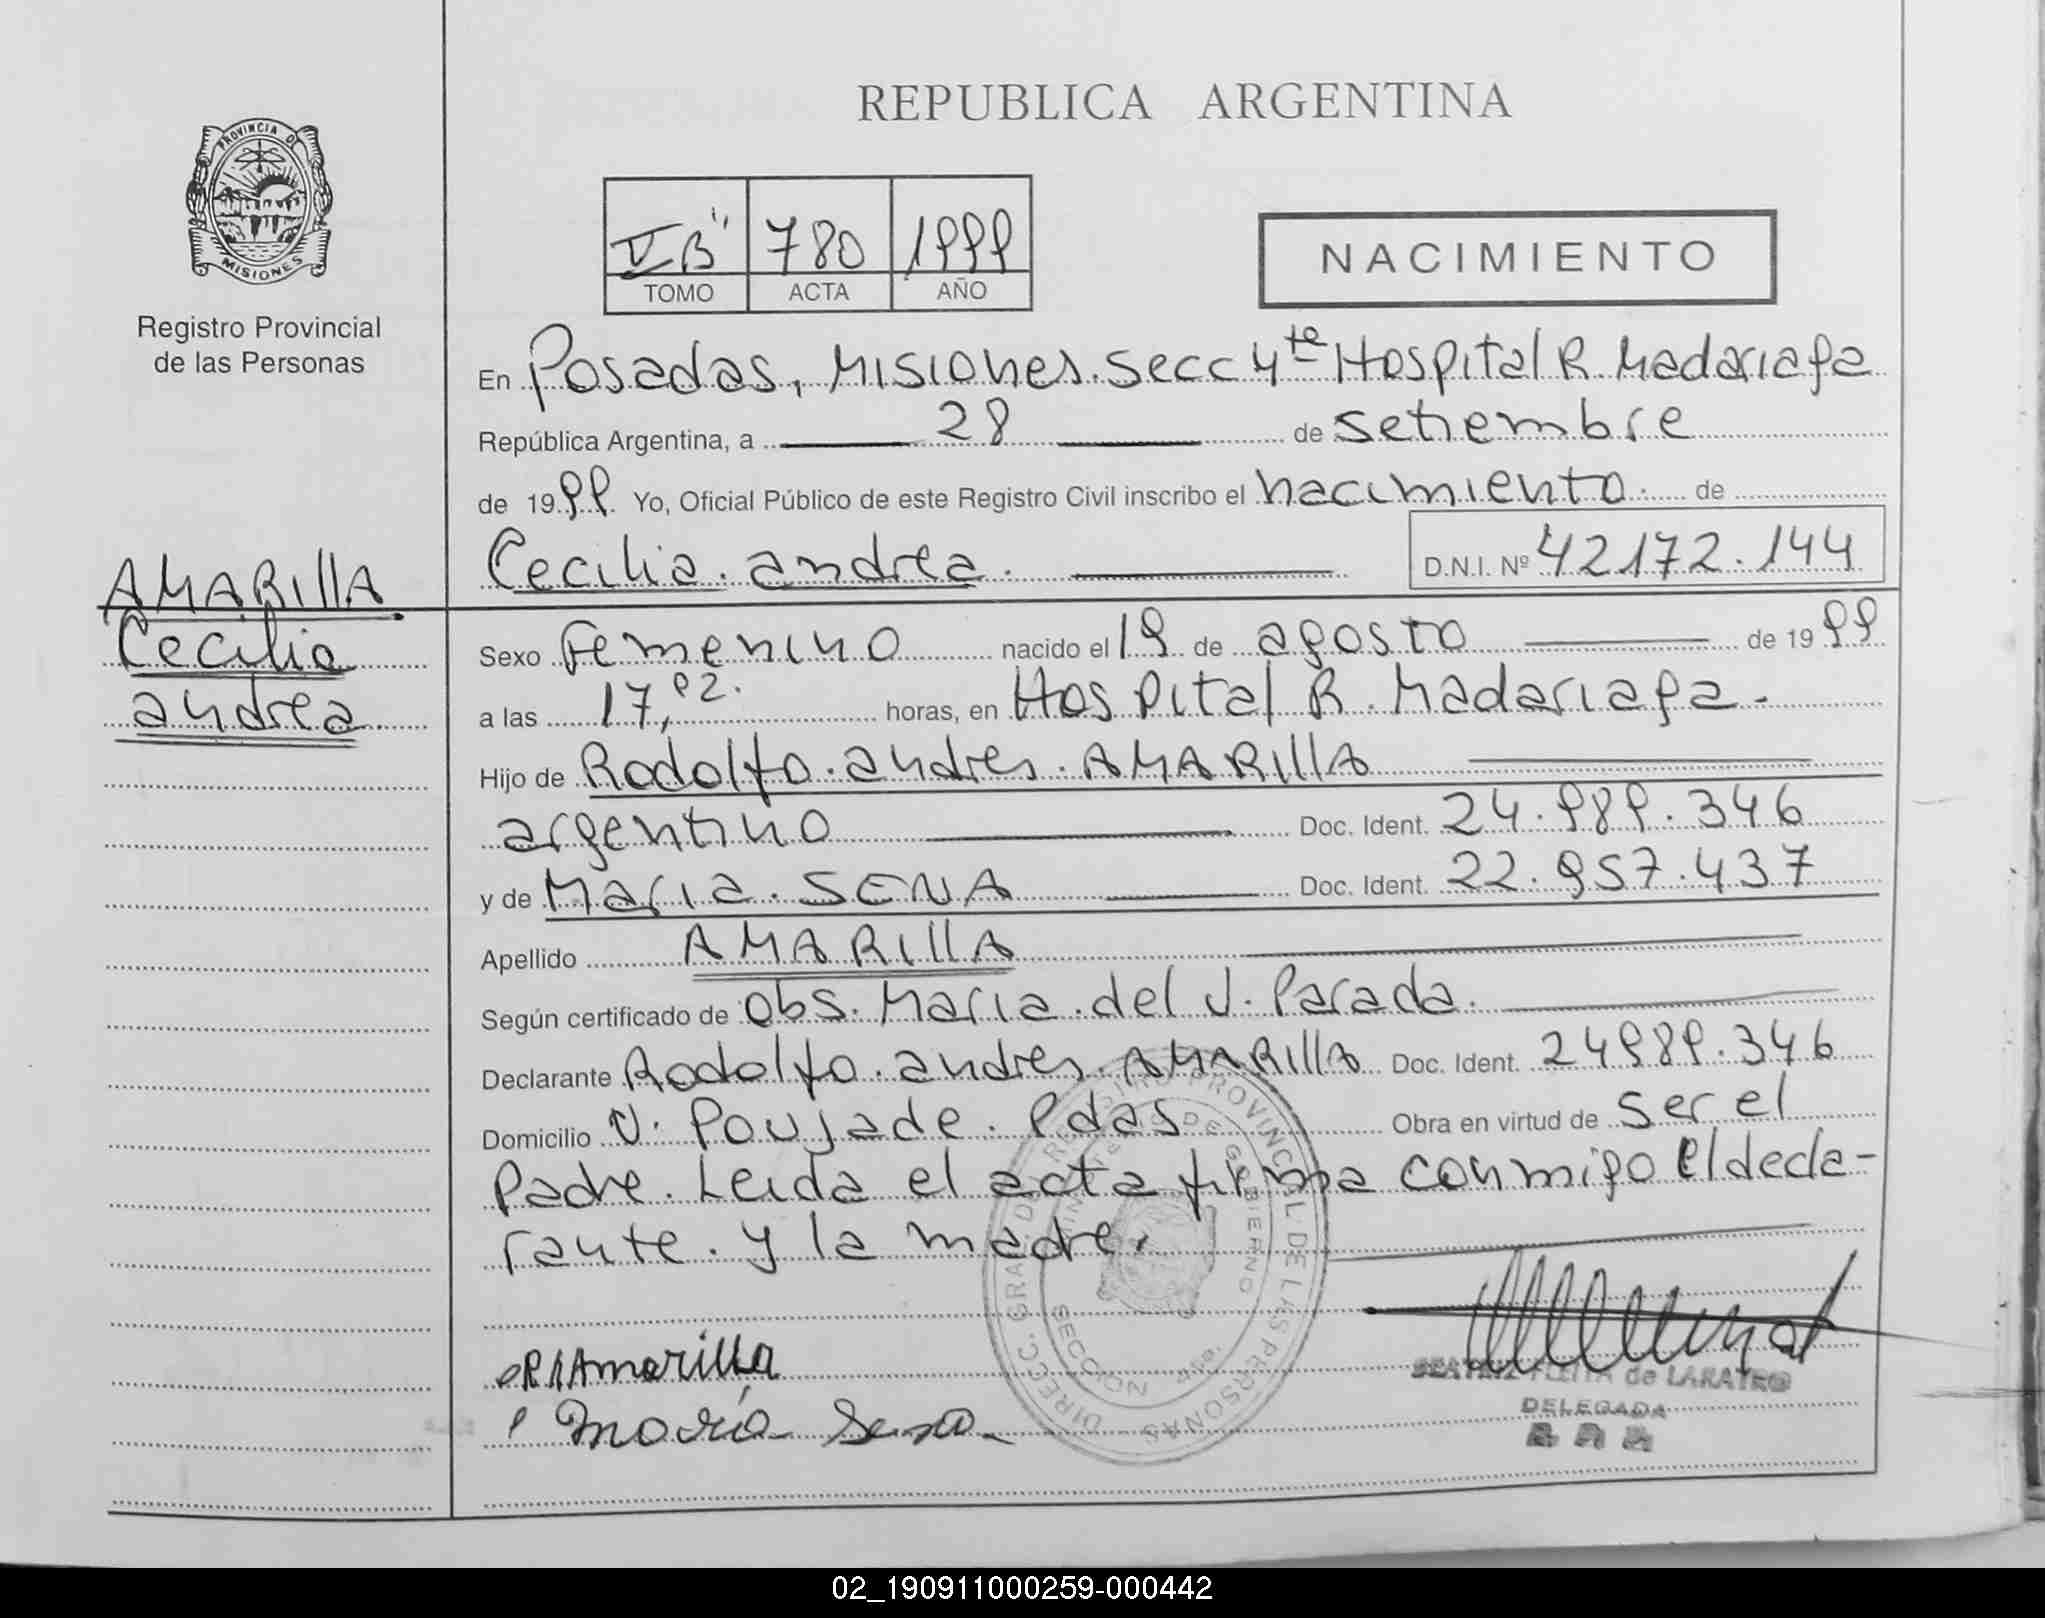 REPUBLICA ARGENTINA
PROVINCIA DE
MISIONES
Registro Provincial
de las Personas
V "B" 780 1999
TOMO ACTA AÑO
NACIMIENTO
En Posadas, Misiones. Secc 4ta Hospital R. Madariaga
República Argentina, a 28 de setiembre
de 1999 Yo, Oficial Público de este Registro Civil inscribo el nacimiento. de
Cecilia. andrea. D.N.I. Nº 42172.144
AMARIllA
Cecilia
andrea
Sexo Femenino nacido el 19 de agosto de 1999
a las 17,02. horas, en Hospital R. Madariaga.
Hijo de Rodolfo. andres. AMARIllA
argentino Doc. Ident. 24.989.346
y de Maria. SENA Doc. Ident. 22.957.437
Apellido AMARIllA
Según certificado de obs. Maria. del J. Parada.
Declarante Rodolfo. andres. AMARIllA Doc. Ident. 24989.346
Domicilio V. Poujade. Pdas Obra en virtud de ser el
Padre. Leida el acta firma conmigo el decla-
rante. y la madre.
DIRECC. GRAL DE REGISTRO PROVINCIAL DE LAS PERSONAS
MINISTERIO DE GOBIERNO
SECCION 4ta.
Amarilla
María Sena
BEATRIZ de
DELEGADA
02_190911000259-000442